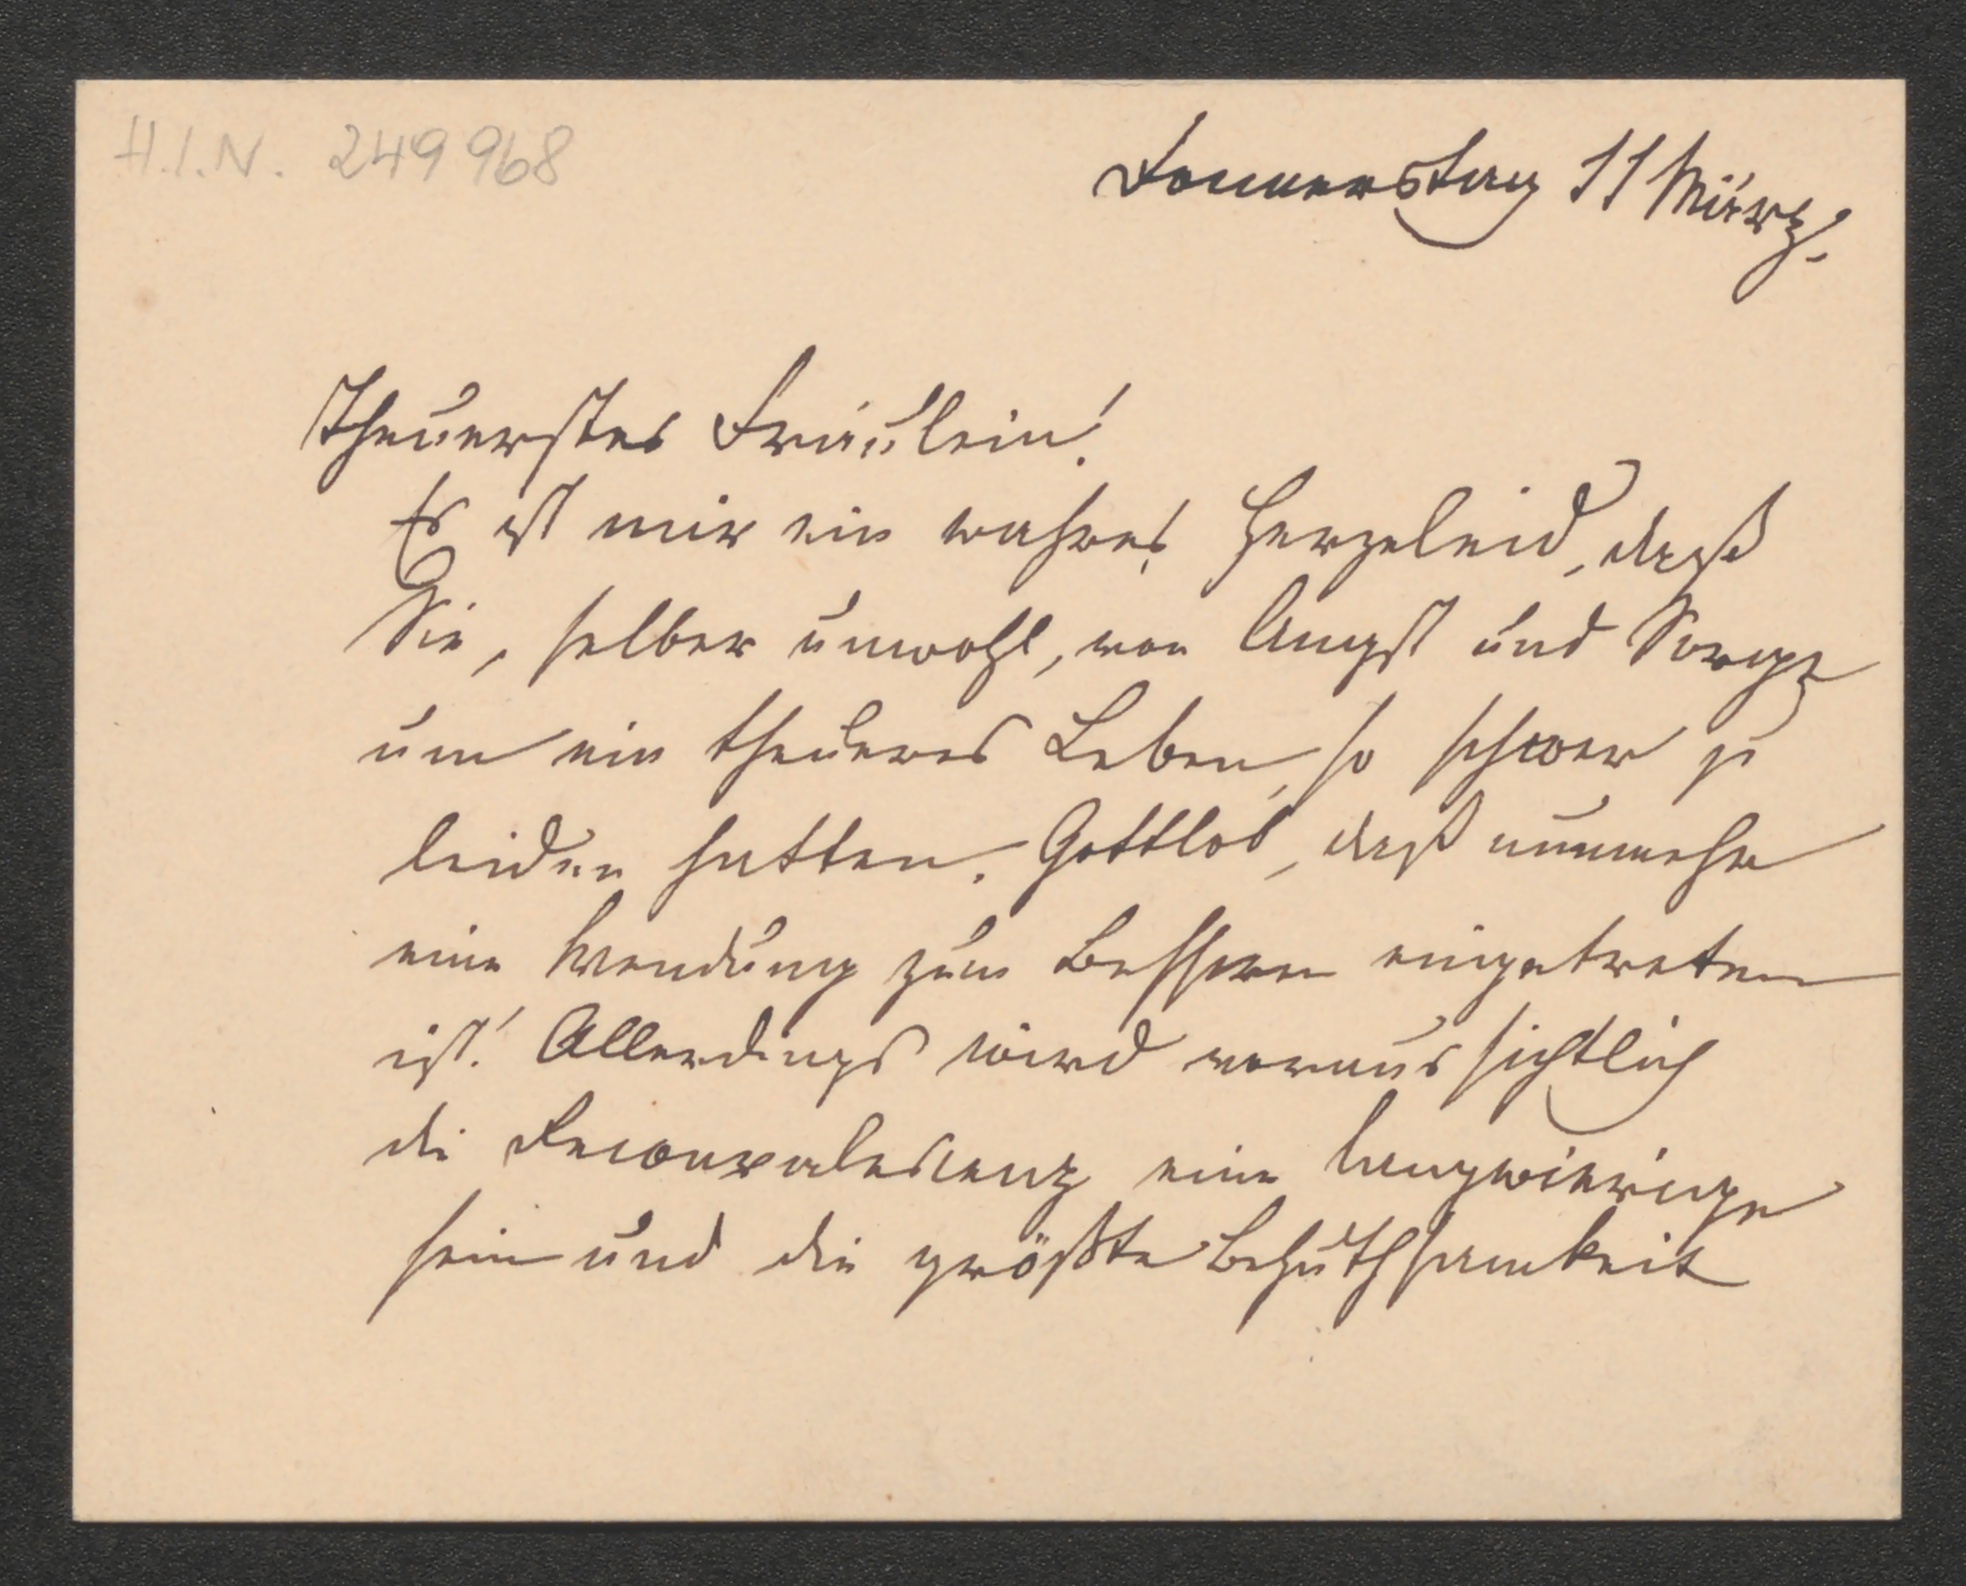 H.I.N. 249 968
Donnerstag 11 März.
Theuerstes Fräulein!
Es ist mir ein wahres Herzeleid, daß
Sie, selber unwohl, von Angst und Sorge
um ein theueres Leben, so schwer zu
leiden hatten. Gottlob, daß nunmehr
eine Wendung zum Bessern eingetreten
ist! Allerdings wird voraussichtlich
die Reconvalescenz eine langwierige
sein und die größte Behuthsamkeit